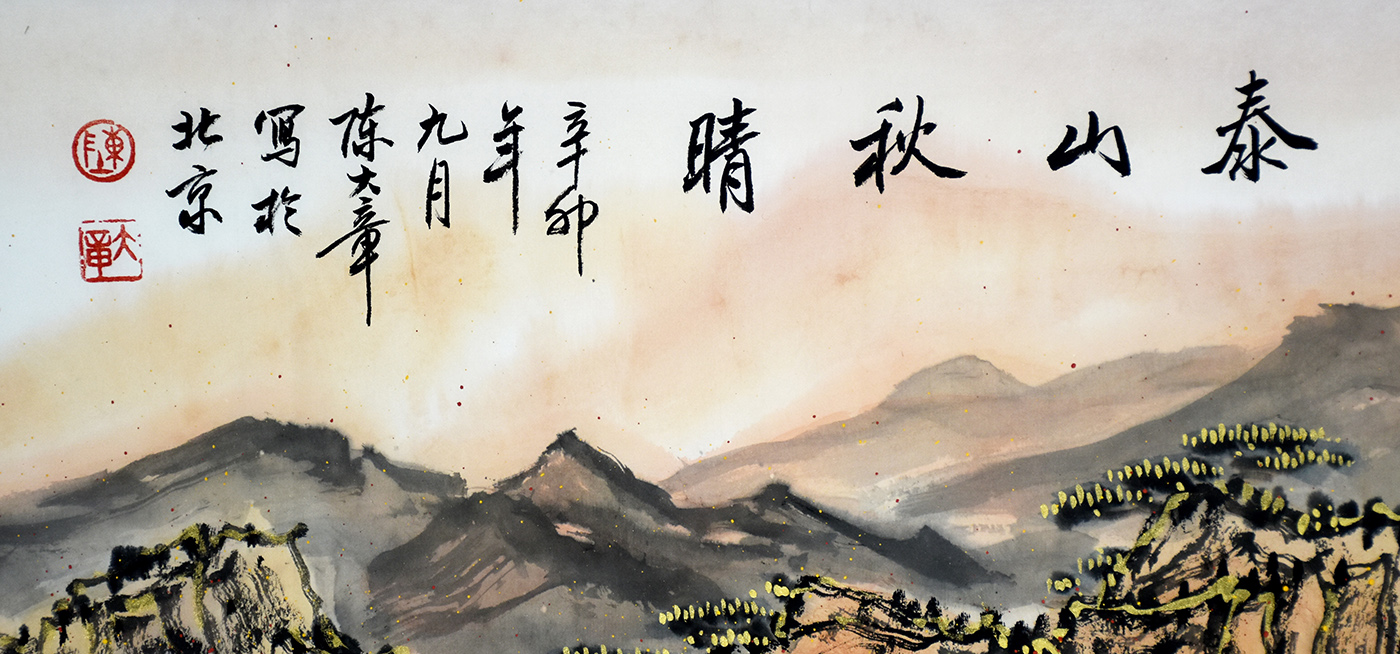 泰山秋晴
辛卯
年
九月
陈大章
寫於
北京
陳
大章